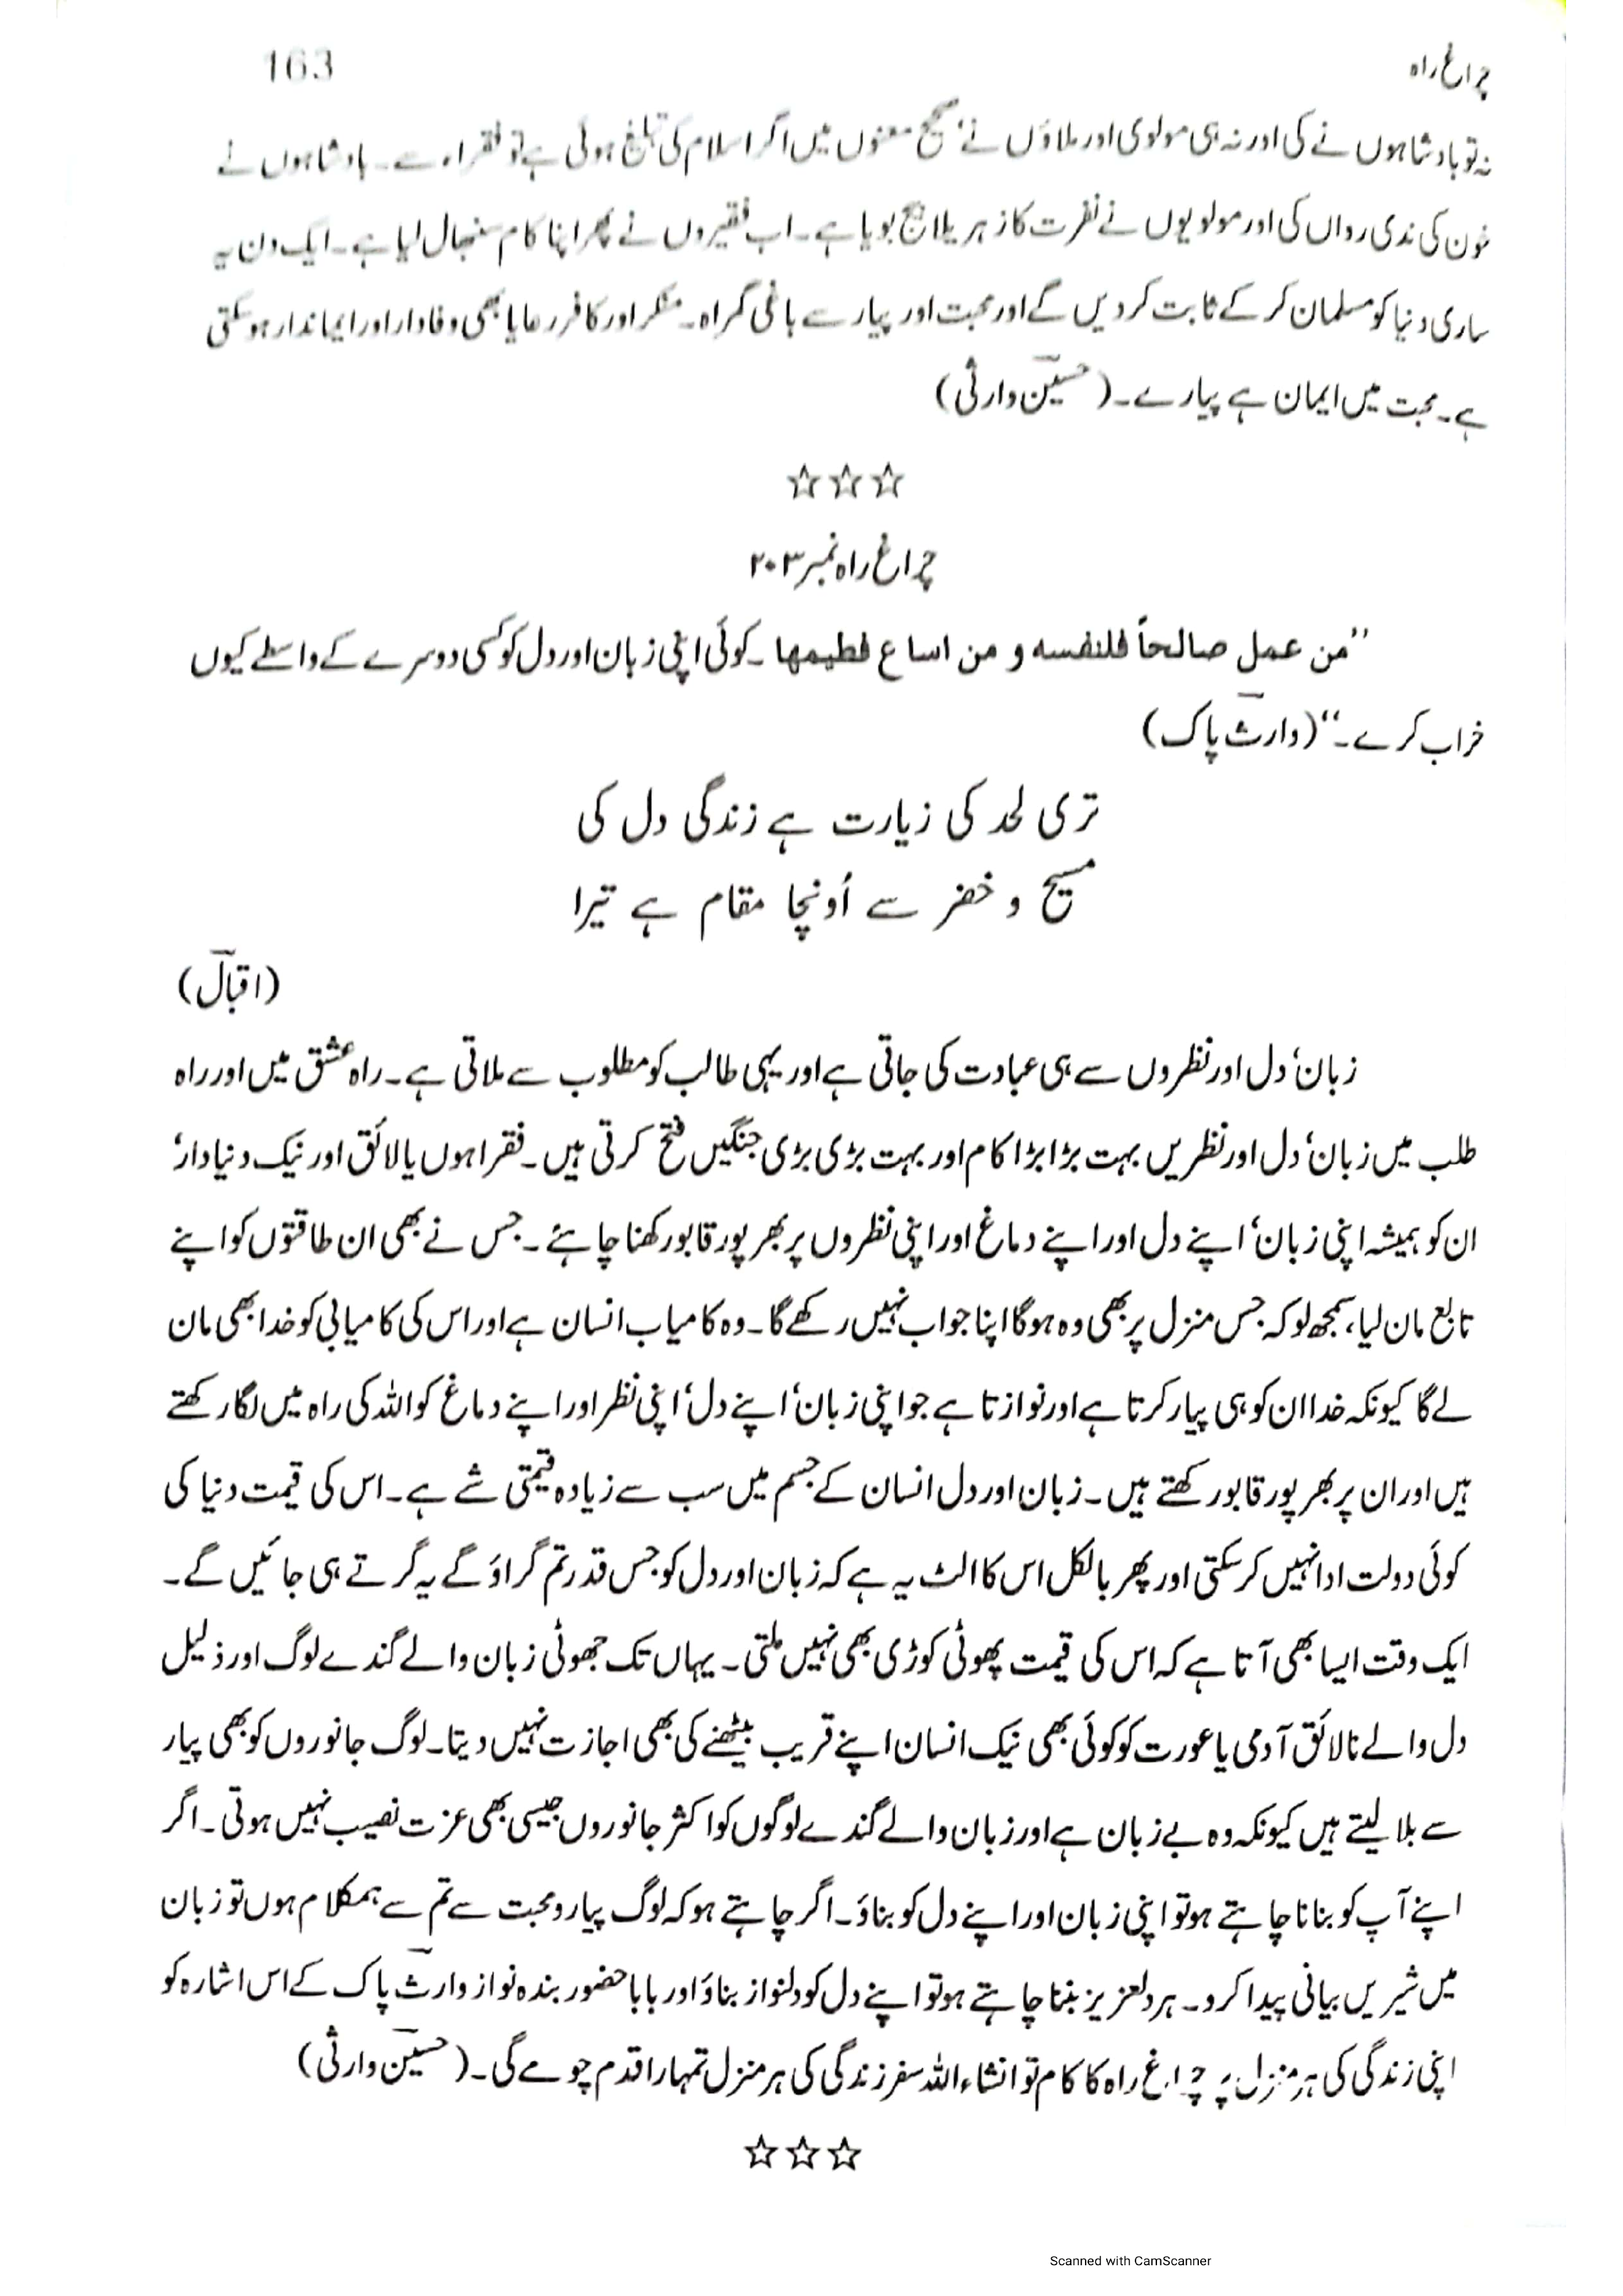 چراغ راہ
163
نہ تو بادشاہوں نے کی اور نہ ہی مولوی اور ملاؤں نے‘ صحیح معنوں میں اگر اسلام کی تبلیغ ہوئی ہے تو فقراء سے۔ بادشاہوں نے
خون کی ندی رواں کی اور مولویوں نے نفرت کا زہریلا بیج بویا ہے۔ اب فقیروں نے پھر اپنا کام سنبھال لیا ہے۔ ایک دن یہ
ساری دنیا کو مسلمان کر کے ثابت کر دیں گے اور محبت اور پیار سے باغی گمراہ۔ منکر اور کافر رعایا بھی وفادار اور ایماندار ہو سکتی
ہے۔ محبت میں ایمان ہے پیارے۔ (حسینؔ وارثی)
☆☆☆
چراغ راہ نمبر ۲۰۳
’’من عمل صالحاً فلنفسه و من اساع فطیمها ۔ کوئی اپنی زبان اور دل کو کسی دوسرے کے واسطے کیوں
خراب کرے۔‘‘ (وارثؔ پاک)
تری لحد کی زیارت ہے زندگی دل کی
مسیح و خضر سے اُونچا مقام ہے تیرا
(اقبالؔ)
زبان‘ دل اور نظروں سے ہی عبادت کی جاتی ہے اور یہی طالب کو مطلوب سے ملاتی ہے۔ راہ عشق میں اور راہ
طلب میں زبان‘ دل اور نظریں بہت بڑا بڑا کام اور بہت بڑی بڑی جنگیں فتح کرتی ہیں۔ فقرا ہوں یا لائق اور نیک دنیا دار‘
ان کو ہمیشہ اپنی زبان‘ اپنے دل اور اپنے دماغ اور اپنی نظروں پر بھرپور قابو رکھنا چاہئے۔ جس نے بھی ان طاقتوں کو اپنے
تابع مان لیا، سمجھ لو کہ جس منزل پر بھی وہ ہوگا اپنا جواب نہیں رکھے گا۔ وہ کامیاب انسان ہے اور اس کی کامیابی کو خدا بھی مان
لے گا کیونکہ خدا ان کو ہی پیار کرتا ہے اور نوازتا ہے جو اپنی زبان‘ اپنے دل‘ اپنی نظر اور اپنے دماغ کو اللہ کی راہ میں لگا رکھتے
ہیں اور ان پر بھرپور قابو رکھتے ہیں۔ زبان اور دل انسان کے جسم میں سب سے زیادہ قیمتی شے ہے۔ اس کی قیمت دنیا کی
کوئی دولت ادا نہیں کر سکتی اور پھر بالکل اس کا الٹ یہ ہے کہ زبان اور دل کو جس قدر تم گراؤ گے یہ گرتے ہی جائیں گے۔
ایک وقت ایسا بھی آتا ہے کہ اس کی قیمت پھوٹی کوڑی بھی نہیں ملتی۔ یہاں تک جھوٹی زبان والے گندے لوگ اور ذلیل
دل والے نالائق آدمی یا عورت کو کوئی بھی نیک انسان اپنے قریب بیٹھنے کی بھی اجازت نہیں دیتا۔ لوگ جانوروں کو بھی پیار
سے بلا لیتے ہیں کیونکہ وہ بے زبان ہے اور زبان والے گندے لوگوں کو اکثر جانوروں جیسی بھی عزت نصیب نہیں ہوتی۔ اگر
اپنے آپ کو بنانا چاہتے ہو تو اپنی زبان اور اپنے دل کو بناؤ۔ اگر چاہتے ہو کہ لوگ پیار و محبت سے تم سے ہمکلام ہوں تو زبان
میں شیریں بیانی پیدا کرو۔ ہر دلعزیز بننا چاہتے ہو تو اپنے دل کو دلنواز بناؤ اور بابا حضور بندہ نواز وارثؔ پاک کے اس اشارہ کو
اپنی زندگی کی ہر منزل پہ چراغ راہ کا کام تو انشاء اللہ سفر زندگی کی ہر منزل تمہارا قدم چومے گی۔ (حسینؔ وارثی)
☆☆☆
Scanned with CamScanner